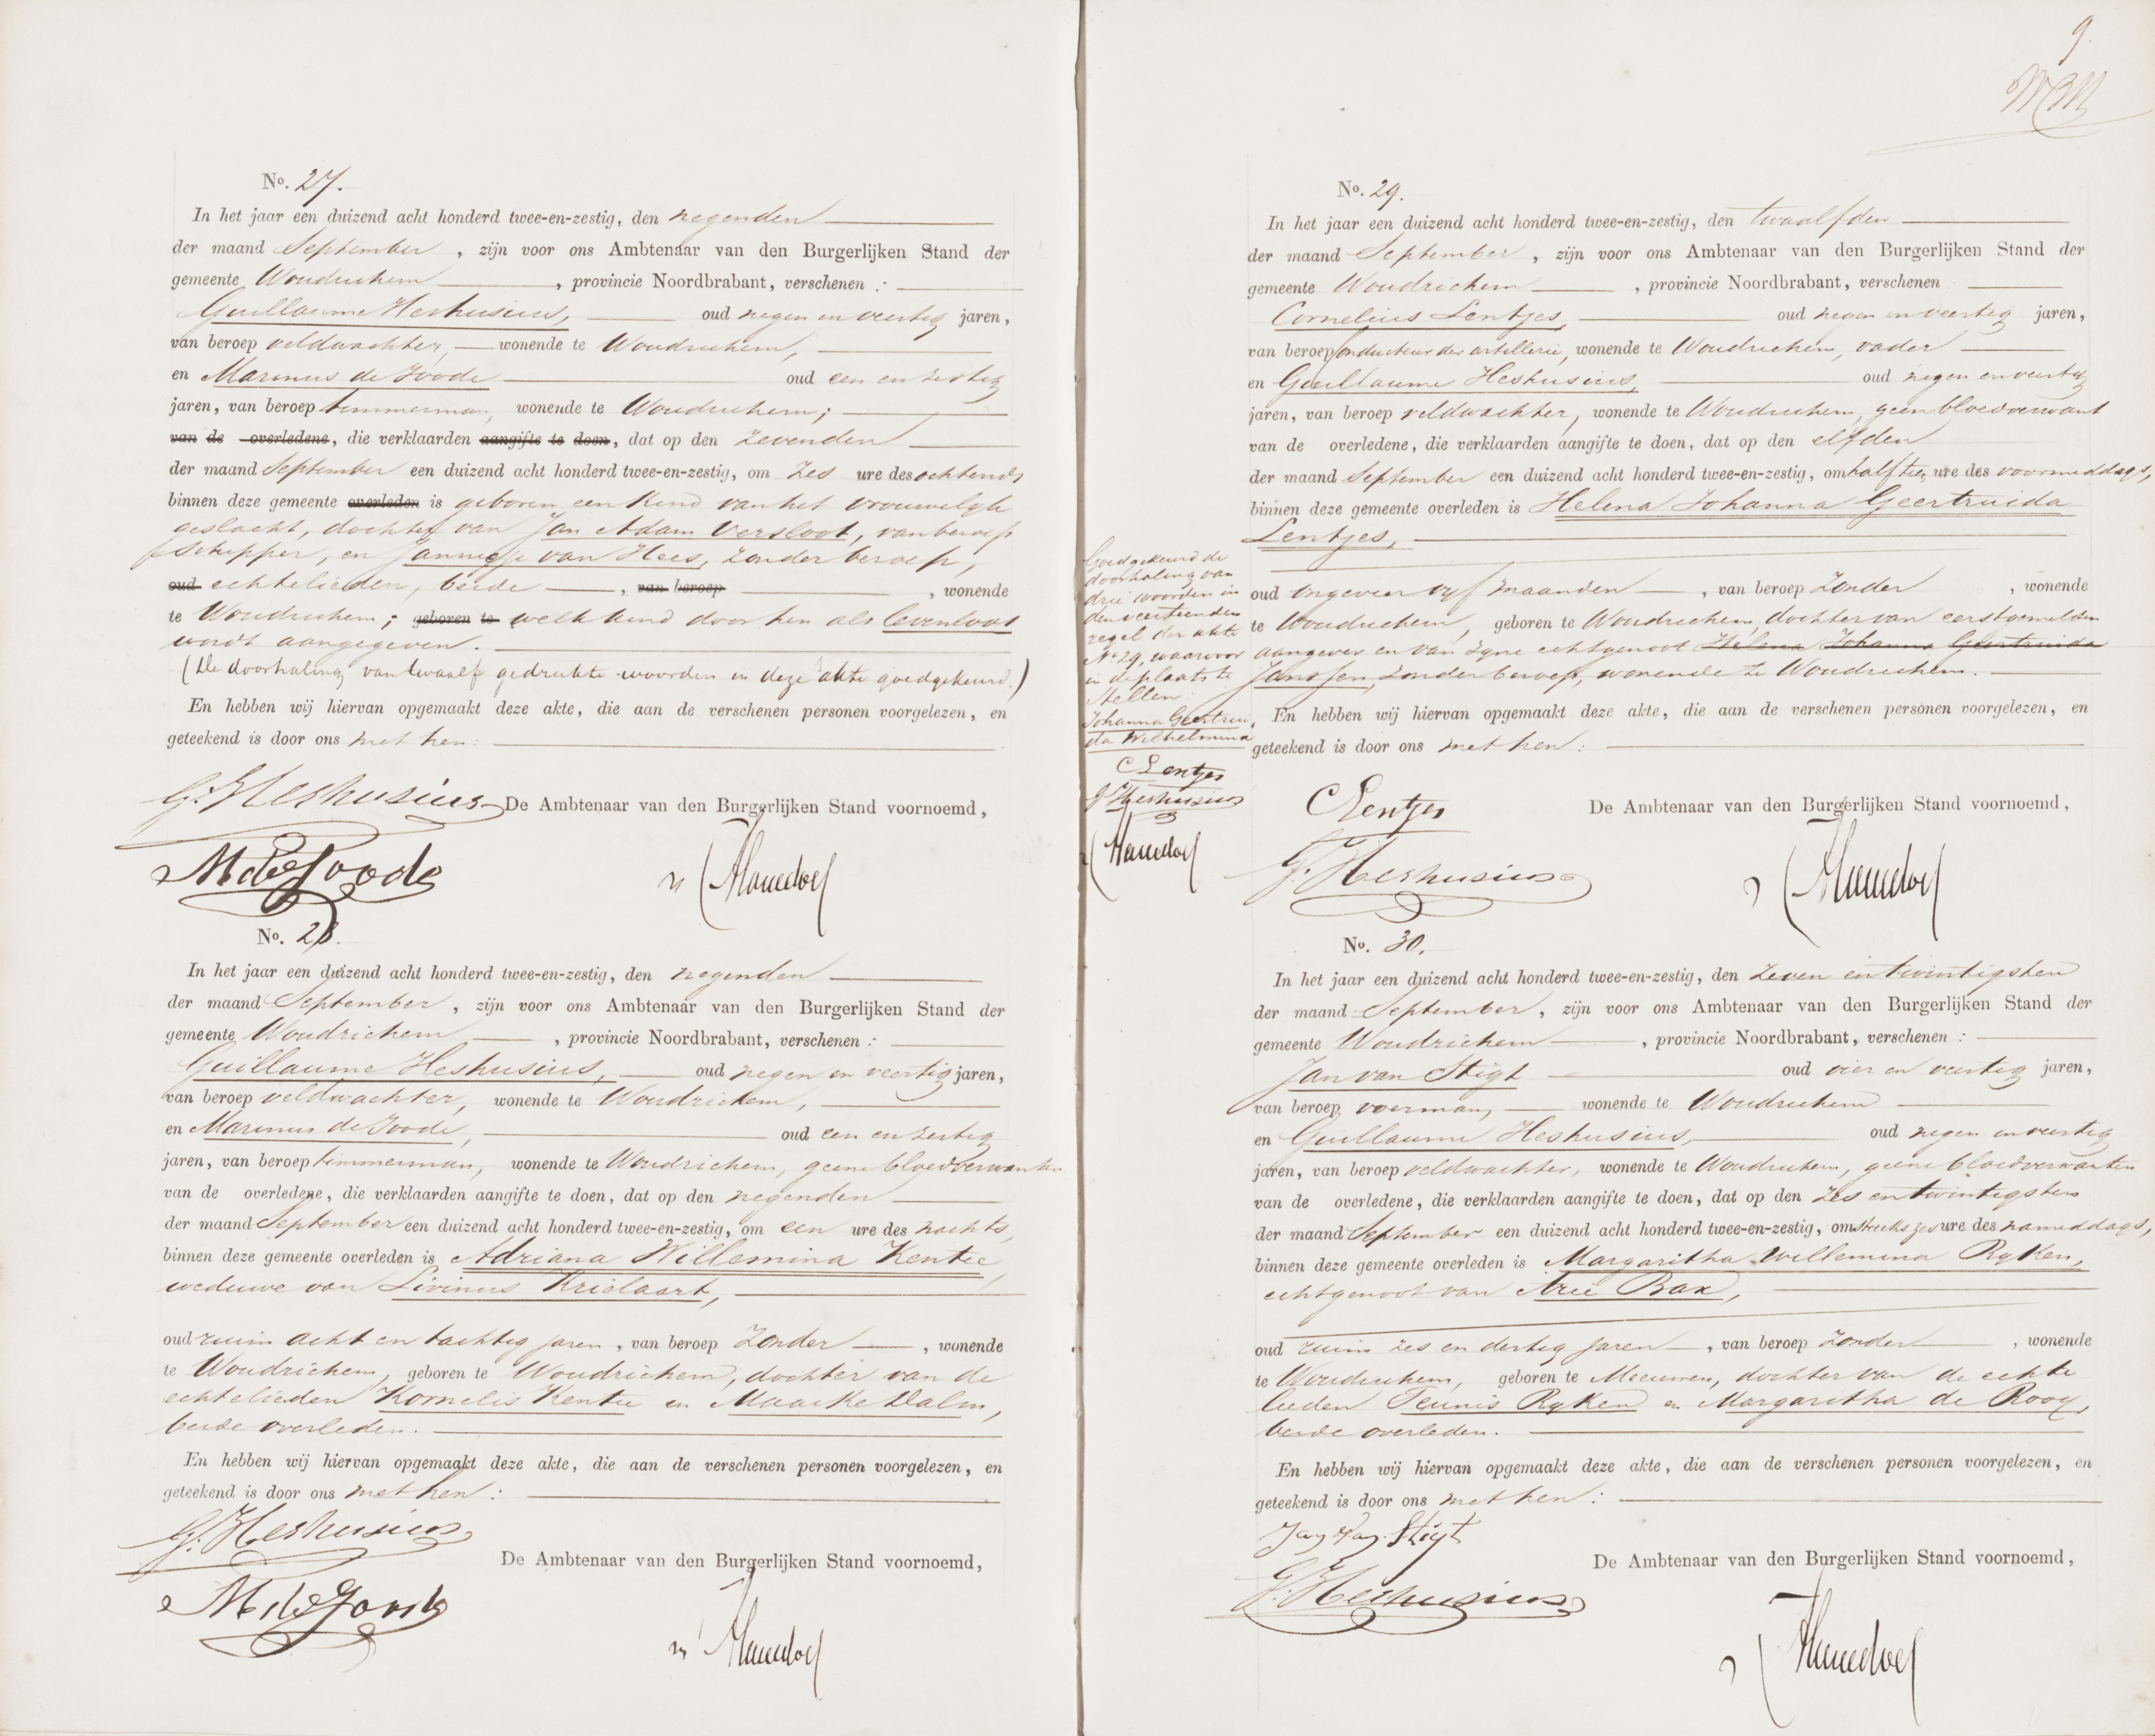 No. 27.
In het jaar een duizend acht honderd twee-en-zestig, den negenden
der maand September, zijn voor ons Ambtenaar van den Burgerlijken Stand der
gemeente Woudrichem, provincie Noordbrabant, verschenen:
Guillaume Heshusius, oud negen en veertig jaren,
van beroep veldwachter, wonende te Woudrichem,
en Marinus de Joode oud een en zestig
jaren, van beroep timmerman, wonende te Woudrichem;
van de overledene, die verklaarden aangifte te doen, dat op den zevenden
der maand September een duizend acht honderd twee-en-zestig, om zes ure des ochtends
binnen deze gemeente overleden is geboren een kind van het vrouwelyk
geslacht, dochter van Jan Adam Versloot, van beroep
Schipper, en Jannigje van Hees, zonder beroep,
oud echtelieden, beide, van beroep, wonende
te Woudrichem; geboren te welk kind door hen als levenloos
wordt aangegeven.
(De doorhaling van twaalf gedrukte woorden in deze akte goedgekeurd.)
En hebben wij hiervan opgemaakt deze akte, die aan de verschenen personen voorgelezen, en
geteekend is door ons met hen:
G. Heshusius De Ambtenaar van den Burgerlijken Stand voornoemd,
M de Joode
No. 28.
In het jaar een duizend acht honderd twee-en-zestig, den negenden
der maand September, zijn voor ons Ambtenaar van den Burgerlijken Stand der
gemeente Woudrichem, provincie Noordbrabant, verschenen:
Guillaume Heshusius, oud negen en veertig jaren,
van beroep veldwachter, wonende te Woudrichem,
en Marinus de Joode, oud een en zestig
jaren, van beroep timmerman, wonende te Woudrichem, geene bloedverwanten
van de overledene, die verklaarden aangifte te doen, dat op den negenden
der maand September een duizend acht honderd twee-en-zestig, om een ure des nachts,
binnen deze gemeente overleden is Adriana Willemina Kentie,
weduwe van Livinus Krielaart,
oud ruim acht en tachtig jaren, van beroep Zonder, wonende
te Woudrichem, geboren te Woudrichem, dochter van de
echtelieden Kornelis Kentie en Maaike Dalm,
beide overleden.
En hebben wij hiervan opgemaakt deze akte, die aan de verschenen personen voorgelezen, en
geteekend is door ons met hen:
G. Heshusius
De Ambtenaar van den Burgerlijken Stand voornoemd,
M de Joode
9.
No. 29.
In het jaar een duizend acht honderd twee-en-zestig, den twaalfden
der maand September, zijn voor ons Ambtenaar van den Burgerlijken Stand der
gemeente Woudrichem, provincie Noordbrabant, verschenen
Cornelius Lentjes, oud negen en veertig jaren,
van beroep conducteur der artillerie, wonende te Woudrichem, vader
en Guillaume Heshusius, oud negen en veertig
jaren, van beroep veldwachter, wonende te Woudrichem, geen bloedverwant
van de overledene, die verklaarden aangifte te doen, dat op den elfden
der maand September een duizend acht honderd twee-en-zestig, om half tien ure des voormiddags,
binnen deze gemeente overleden is Helena Johanna Geertruida
Lentjes,
oud ongeveer vyf maanden, van beroep Zonder, wonende
te Woudrichem, geboren te Woudrichem, dochter van eerstgemelden
aangever en van zyne echtgenoot Helena Johanna Geertruida
Janssen, zonder beroep, wonende te Woudrichem.
En hebben wij hiervan opgemaakt deze akte, die aan de verschenen personen voorgelezen, en
geteekend is door ons met hen:
Goedgekeurd de
doorhaling van
drie woorden in
den veertienden
regel der akte
No 29, waarvoor
in de plaats te
stellen:
Johanna Geertrui
da Wilhelmina
C Lentjes
G Heshusius
C Lentjes
De Ambtenaar van den Burgerlijken Stand voornoemd,
G. Heshusius
No. 30.
In het jaar een duizend acht honderd twee-en-zestig, den zeven en twintigsten
der maand September, zijn voor ons Ambtenaar van den Burgerlijken Stand der
gemeente Woudrichem, provincie Noordbrabant, verschenen:
Jan van Stigt oud vier en veertig jaren,
van beroep voerman, wonende te Woudrichem
en Guillaume Heshusius, oud negen en veertig
jaren, van beroep veldwachter, wonende te Woudrichem, geene bloedverwanten
van de overledene, die verklaarden aangifte te doen, dat op den zes en twintigsten
der maand September een duizend acht honderd twee-en-zestig, omstreeks zes ure des namiddags,
binnen deze gemeente overleden is Margaritha Willemina Ryken,
echtgenoot van Arie Bax,
oud ruim zes en dertig jaren, van beroep Zonder, wonende
te Woudrichem, geboren te Meeuwen, dochter van de echte
lieden Teunis Ryken en Margaritha de Rooy,
beide overleden.
En hebben wij hiervan opgemaakt deze akte, die aan de verschenen personen voorgelezen, en
geteekend is door ons met hen:
Jan Van Stigt
De Ambtenaar van den Burgerlijken Stand voornoemd,
G. Heshusius